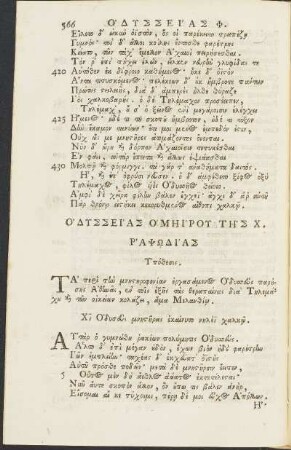 566 Ο'ΔΥΣΣΕΙ'ΑΣ Φ.
Εἵλετο δ' ὠκὺν ὀϊστὸν, ὅ οἱ παρέκειτο τραπέζῃ
Γυμνός· τοὶ δ' ἄλλοι κοίλης ἔντοσθε φαρέτρης
Κείατο, τῶν τάχ' ἔμελλον Ἀχαιοὶ πειρήσεσθαι.
Τόν ῥ' ἐπὶ πήχει ἑλὼν, ἕλκεν νευρὴν γλυφίδας τε
420 Αὐτόθεν ἐκ δίφροιο καθήμενος· ἧκε δ' ὀϊστὸν
Ἄντα τιτυσκόμενος· πελέκεων δ' οὐκ ἤμβροτε πάντων
Πρώτης στειλειῆς, διὰ δ' ἀμπερὲς ἦλθε θύραζε
Ἰὸς χαλκοβαρής· ὁ δὲ Τηλέμαχον προσέειπεν,
Τηλέμαχ', οὔ σ' ὁ ξεῖνος ἐνὶ μεγάροισιν ἐλέγχει
425 Ἥμενος· οὐδέ τι τοῦ σκοποῦ ἤμβροτον, οὐδέ τι τόξον
Δὴν ἔκαμον τανύων· ἔτι μοι μένος ἔμπεδόν ἐστιν,
Οὐχ ὥς με μνηστῆρες ἀτιμάζοντες ὄνονται.
Νῦν δ' ὥρη καὶ δόρπον Ἀχαιοῖσιν τετυκέσθαι
Ἐν φάει, αὐτὰρ ἔπειτα καὶ ἄλλως ἑψιάασθαι
430 Μολπῇ καὶ φόρμιγγι, τὰ γάρ τ' ἀναθήματα δαιτός.
Ἦ, καὶ ἐπ' ὀφρύσι νεῦσεν· ὁ δ' ἀμφέθετο ξίφος ὀξὺ
Τηλέμαχος, φίλος υἱὸς Ὀδυσσῆος θείοιο·
Ἀμφὶ δὲ χεῖρα φίλην βάλεν ἔγχεϊ· ἄγχι δ' ἄρ αὐτοῦ
Πὰρ θρόνον ἑστήκει κεκορυθμένος αἴθοπι χαλκῷ.
Ο'ΔΥΣΣΕΙ'ΑΣ Ο'ΜΗ'ΡΟΥ ΤΗ͂Σ Χ.
Ρ'ΑΨΩΔΙ'ΑΣ
Ὑπόθεσις.
Χῖ Ὀδυσεὺς μνηστῆρας ἐκαίνυτο νηλέϊ χαλκῷ.
ΑΥ'τὰρ ὁ γυμνώθη ῥακέων πολύμητις Ὀδυσσεύς.
Ἆλτο δ' ἐπὶ μέγαν οὐδὸν, ἔχων βιὸν ἠδὲ φαρέτρην
Ἰῶν ἐμπλείην· ταχέας δ' ἐκχεύατ' ὀϊστοὺς
Αὐτοῦ πρόσθε ποδῶν· μετὰ δὲ μνηστῆρσιν ἔειπεν,
5 Οὗτος μὲν δὴ ἄεθλος ἀάατος ἐκτετέλεσται·
Νῦν αὖτε σκοπὸν ἄλλον, ὃν οὔπω τις βάλεν ἀνὴρ,
Εἴσομαι αἴ κε τύχωμι, πόρῃ δέ μοι εὖχος Ἀπόλλων.
Ἦ,